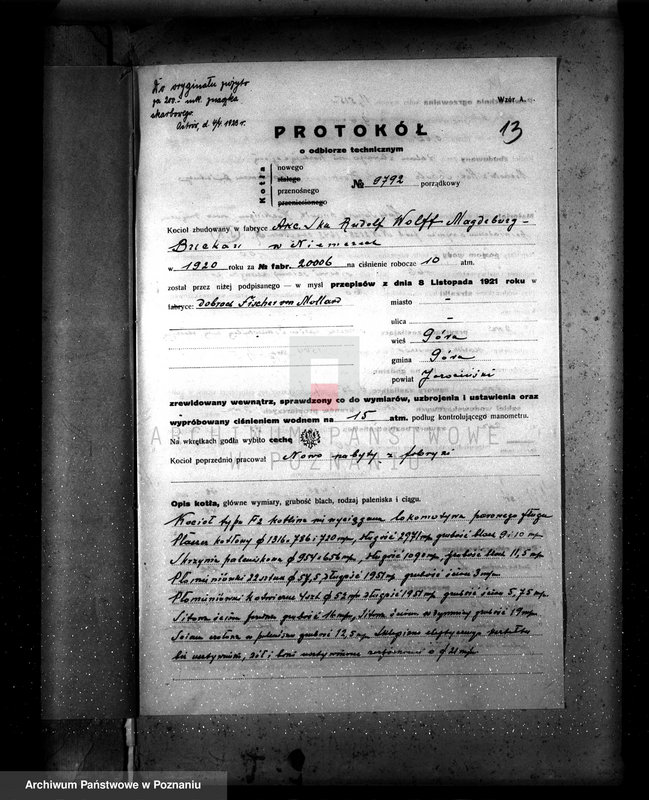 Do oryginału użyto
za 200.- mk. znaczka
skarbowego
Ostrów, d.
Wzór A.
13
PROTOKÓŁ
o odbiorze technicznym
Kotła
nowego
stałego
przenośnego
przeniesionego
№ 9792 porządkowy
Kocioł zbudowany w fabryce Akc. Ska Rudolf Wolff Magdeburg-
Buckau w Niemczech
w 1920 roku za № fabr. 20006 na ciśnienie robocze 10 atm.
został przez niżej podpisanego — w myśl przepisów z dnia 8 Listopada 1921 roku w
fabryce: dobrach Fischer von Mollard
miasto —
ulica —
wieś Góra
gmina Góra
powiat Jarociński
zrewidowany wewnątrz, sprawdzony co do wymiarów, uzbrojenia i ustawienia oraz
wypróbowany ciśnieniem wodnem na 15 atm. podług kontrolującego manometru.
Na wkrętkach godła wybito cechę
Kocioł poprzednio pracował Nowo nabyty z fabryki
Opis kotła, główne wymiary, grubość blach, rodzaj paleniska i ciągu.
Kocioł typu F2 lokomotywa parowego pługa
Płaszcz kotłowy ø 1316, 786 i 710 m/m, długość 2971 m/m grubość blach 9 i 10 m/m
Skrzynia paleniskowa ø 954 i 656 m/m, długość 1090 m/m, grubość blach 11,5 m/m
Płomieniówki ø 57,5, długość 1951 m/m grubość ścian 3 m/m
Płomieniówki kotwiczne 4 szt ø 52 m/m długość 1951 m/m grubość ścian 5,75 m/m
Sitowa ściana grubość 16 m/m, Sitowa ściana grubość 19 m/m
Ściana w palenisku grubość 12,5 m/m
ø 21 m/m
ARCHIWUM PAŃSTWOWE
W POZNANIU
Archiwum Państwowe w Poznaniu